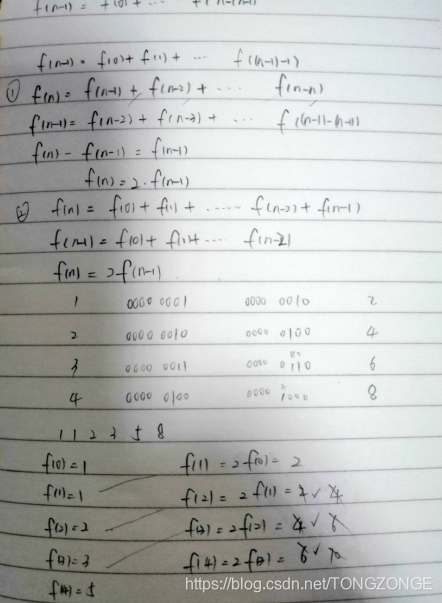 f(n-1) = f(0) + ... + f(n-(n-1)
f(n-1) = f(0) + f(1) + ... f((n-1)-1)
① f(n) = f(n-1) + f(n-2) + ... f(n-n)
f(n-1) = f(n-2) + f(n-3) + ... f((n-1)-(n-1))
f(n) - f(n-1) = f(n-1)
f(n) = 2·f(n-1)
② f(n) = f(0) + f(1) + ..... f(n-2) + f(n-1)
f(n-1) = f(0) + f(1) + ... f(n-2)
f(n) = 2f(n-1)
1 0000 0001 0000 0010 2
2 0000 0010 0000 0100 4
3 0000 0011 0000 0110 6
4 0000 0100 0000 1000 8
1 1 2 3 5 8
f(0)=1 f(1) = 2f(0) = 2
f(1)=1 f(2) = 2f(1) = ✓ 4
f(2)=2 f(3) = 2f(2) = 4 ✓
f(3)=3 f(4) = 2f(3) = 6 ✓ 10
f(4)=5
https://blog.csdn.net/TONGZONGE